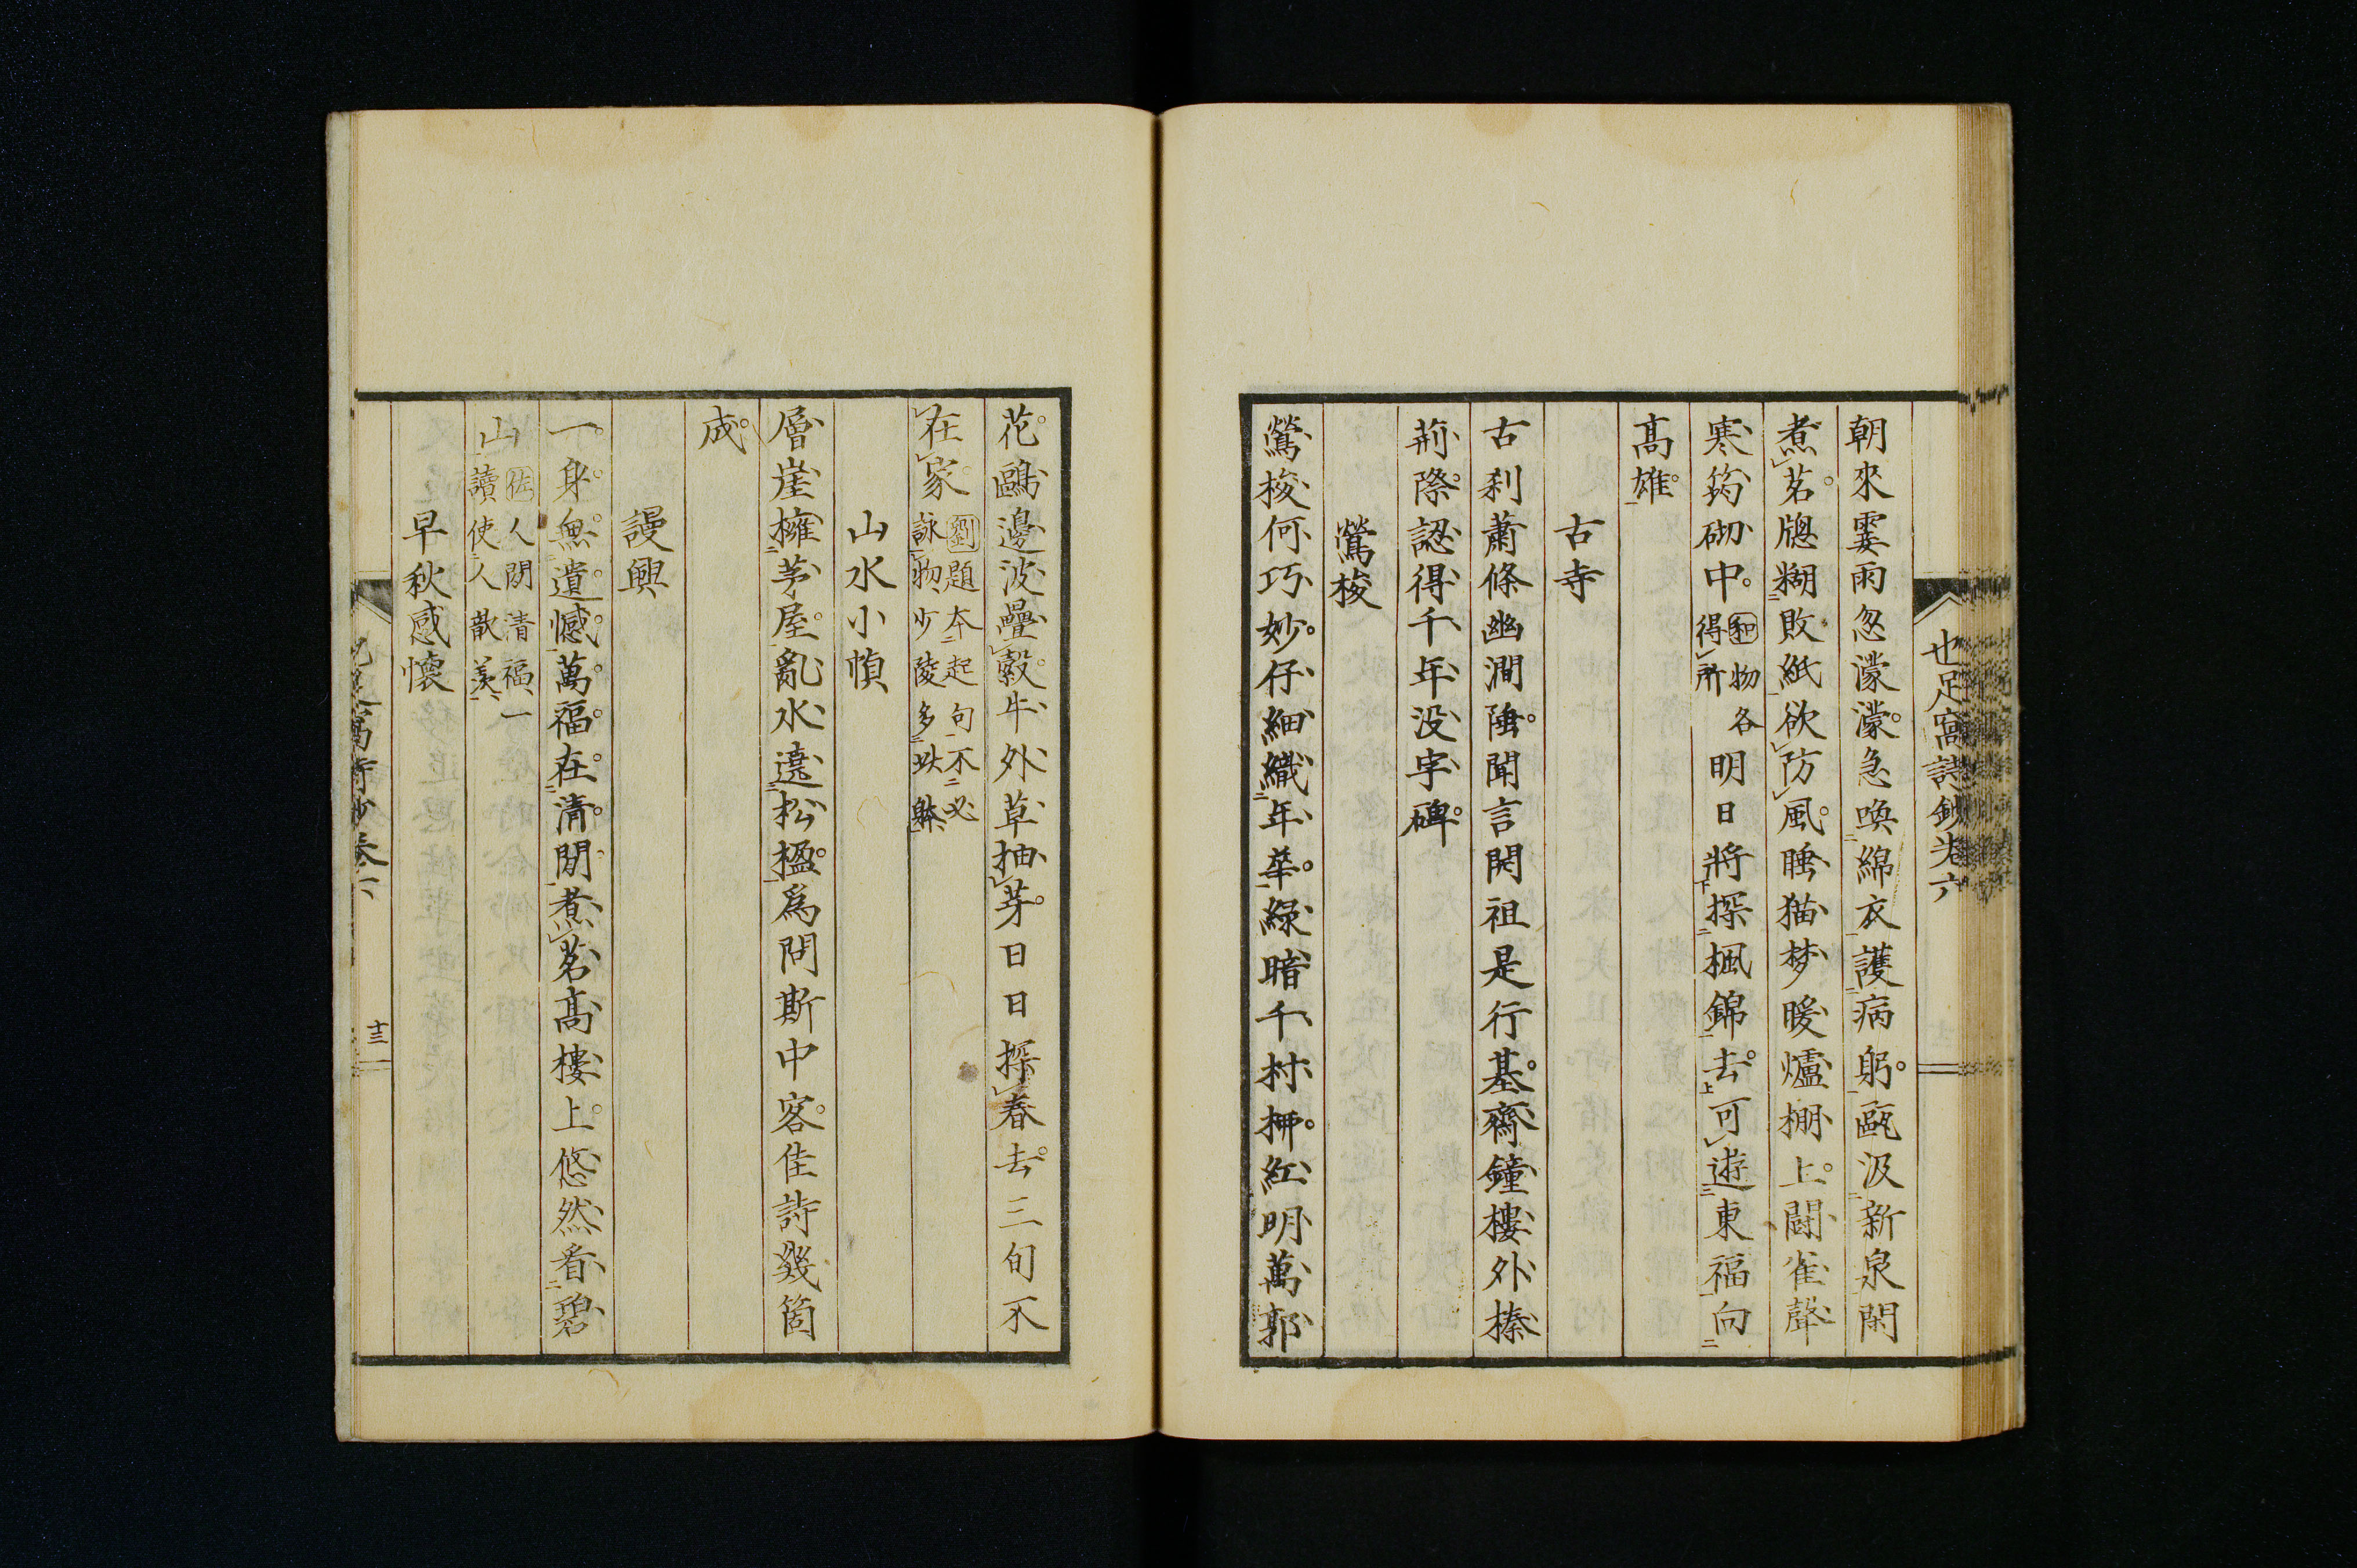 也足窩詩鈔卷六
朝來霎雨忽濛濛急喚綿衣護病躬甌汲新泉閑
煮茗牕糊敗紙欲防風睡猫夢暖爐棚上鬪雀聲
寒筠砌中
物各
得所
明日將探楓錦去可遊東福向
高雄
古寺
古刹蕭條幽澗陲聞言開祖是行基齋鐘樓外榛
荊際認得千年没字碑
鶯梭
鶯梭何巧妙仔細織年華緑暗千村柳紅明萬郭
花鷗邊波疊縠牛外草抽芽日日探春去三旬不
在家
劉題本起句不必
詠物少陵多此躰
山水小幀
層崖擁茅屋亂水遶松楹爲問斯中客佳詩幾箇
成
謾興
一身無遺憾萬福在清閒煮茗高樓上悠然看碧
山
佐人閒清福一
讀使人歆羨
早秋感懷
也足窩詩鈔卷六
十三